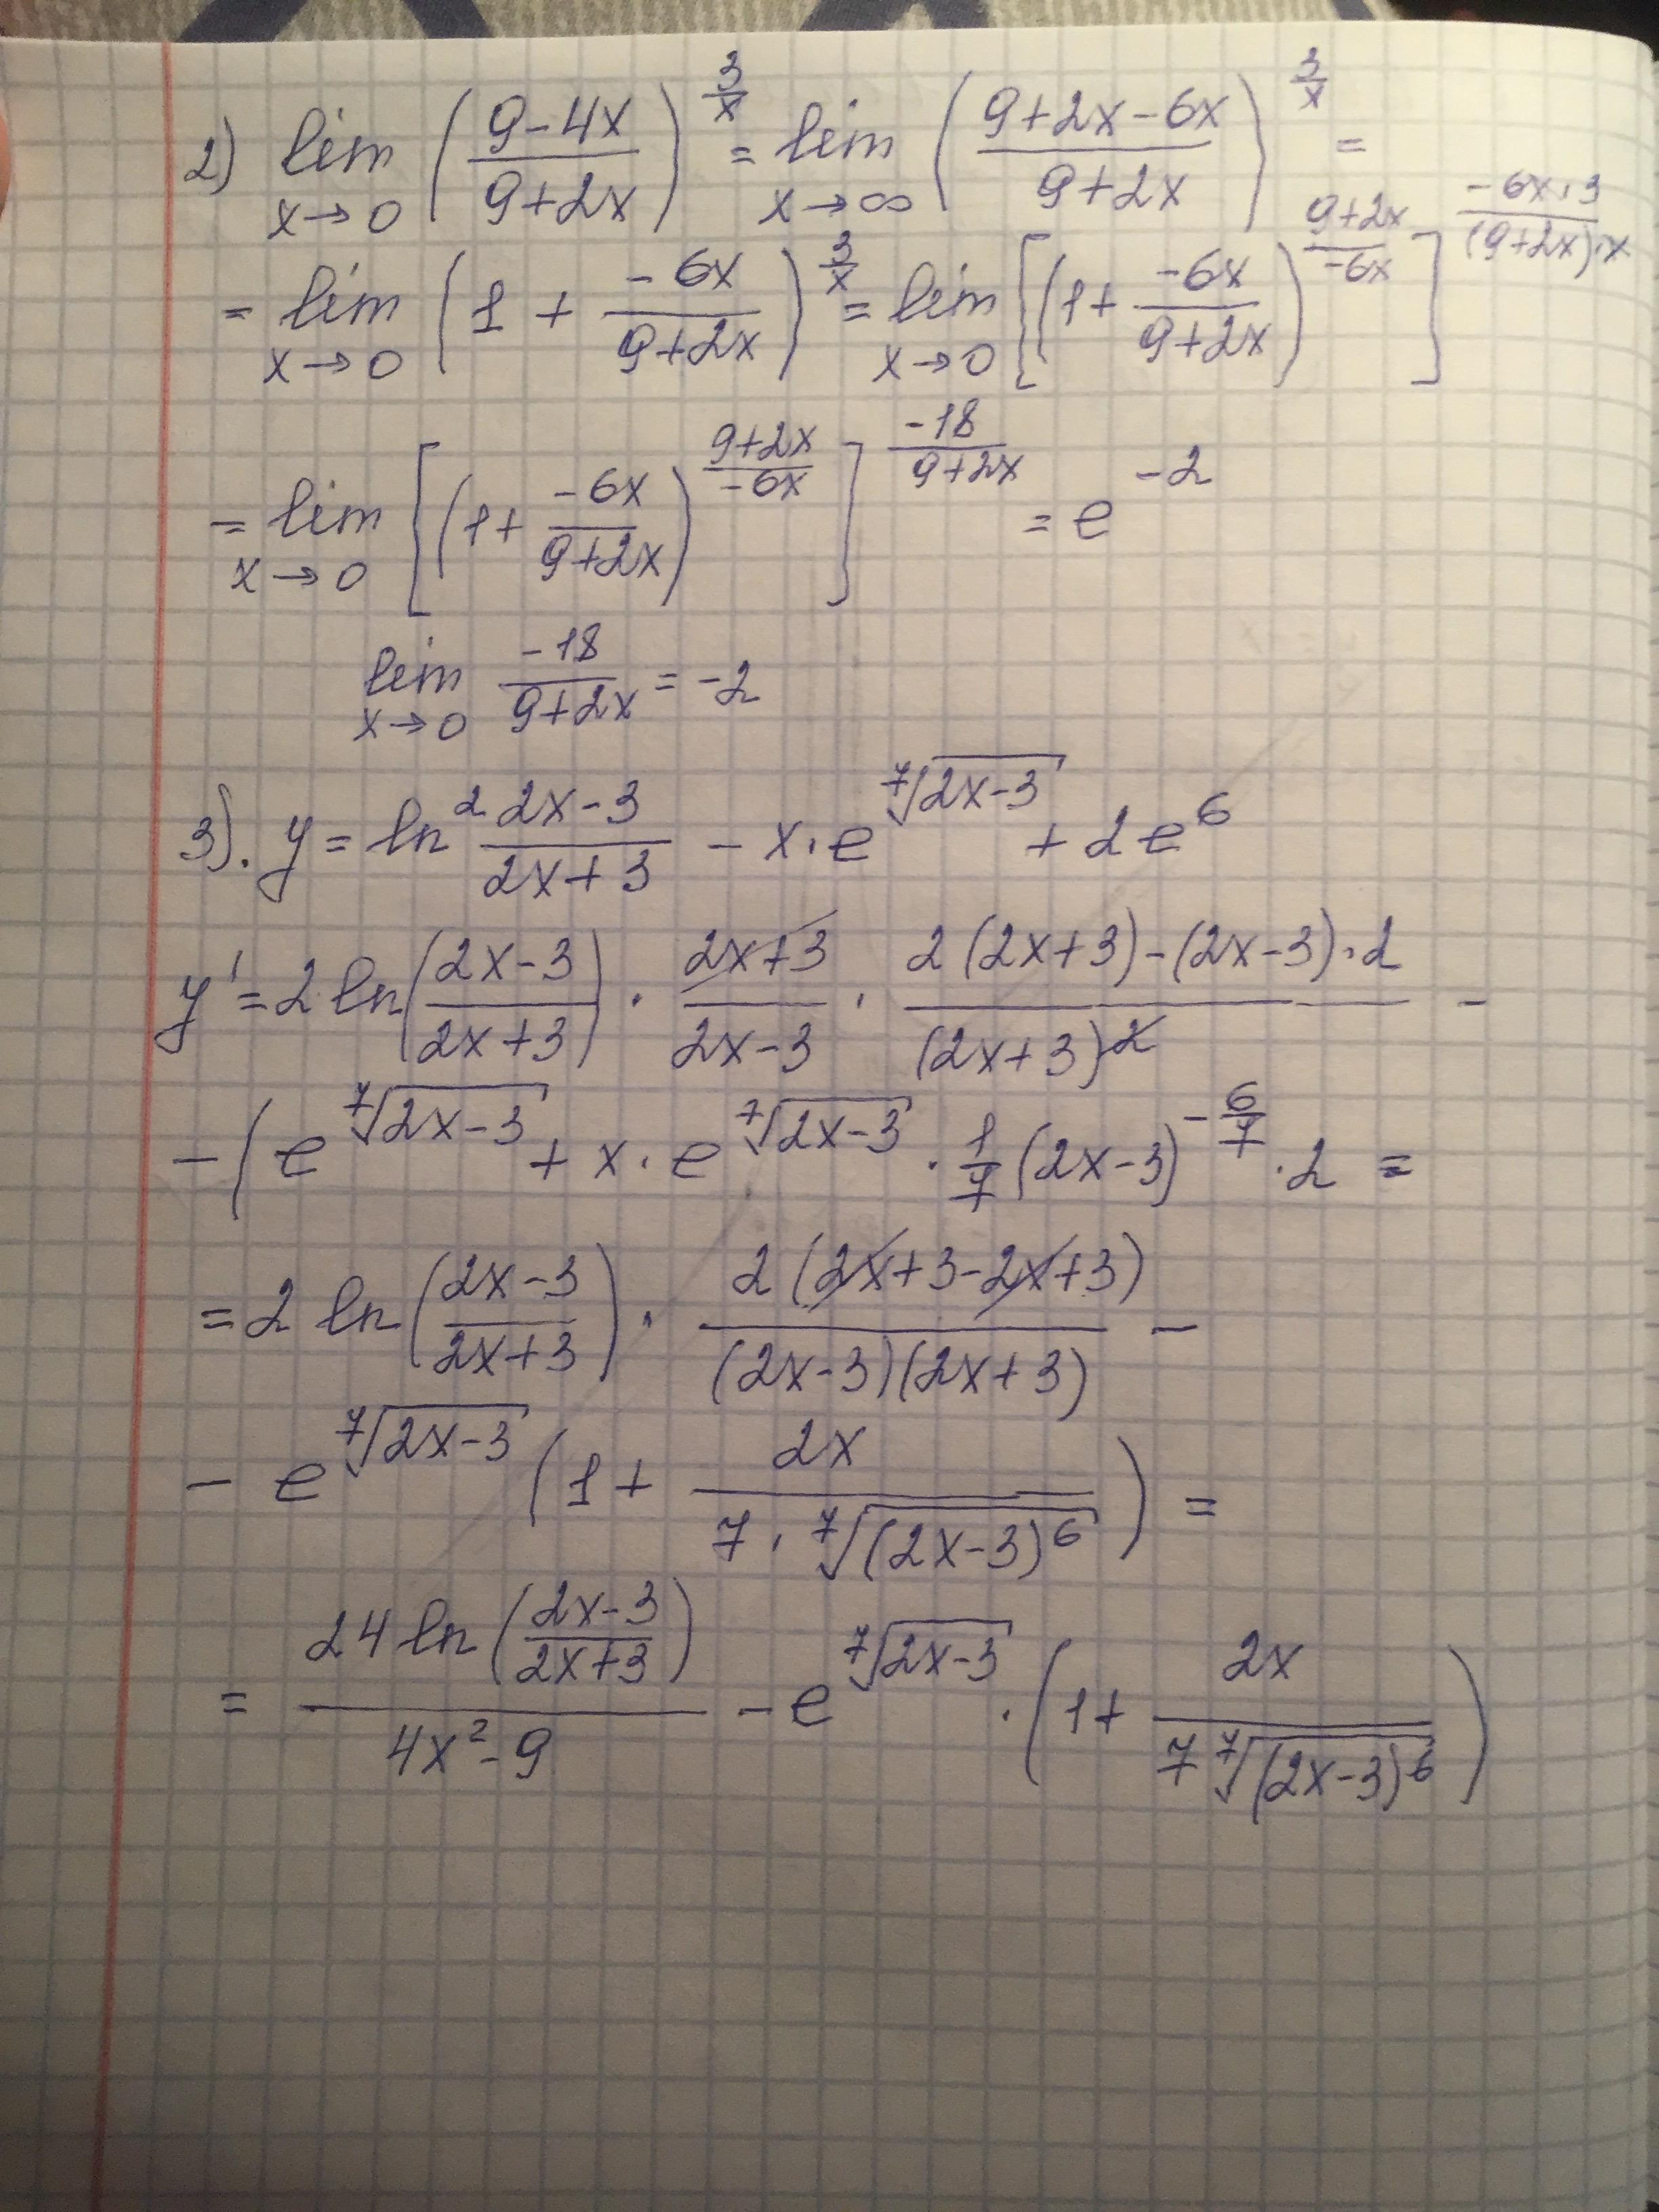 2) lim x→0 ((9-4x)/(9+2x))^(3/x) = lim x→∞ ((9+2x-6x)/(9+2x))^(3/x) =
= lim x→0 (1 + (-6x)/(9+2x))^(3/x) = lim x→0 [(1+ (-6x)/(9+2x))^((9+2x)/(-6x))]^((-6x·3)/((9+2x)·x))
= lim x→0 [(1+ (-6x)/(9+2x))^((9+2x)/(-6x))]^(-18/(9+2x)) = e^(-2)
lim x→0 -18/(9+2x) = -2
3). y = ln² (2x-3)/(2x+3) - x·e^(⁷√(2x-3)) + 2e⁶
y' = 2 ln((2x-3)/(2x+3)) · (2x+3)/(2x-3) · (2(2x+3)-(2x-3)·2)/(2x+3)² -
- (e^(⁷√(2x-3)) + x·e^(⁷√(2x-3)) · 1/7 (2x-3)^(-6/7) · 2 =
= 2 ln((2x-3)/(2x+3)) · (2(2x+3-2x+3))/((2x-3)(2x+3)) -
- e^(⁷√(2x-3)) (1+ 2x/(7·⁷√((2x-3)⁶))) =
= (24 ln((2x-3)/(2x+3)))/(4x²-9) - e^(⁷√(2x-3)) · (1+ 2x/(7 ⁷√((2x-3)⁶)))